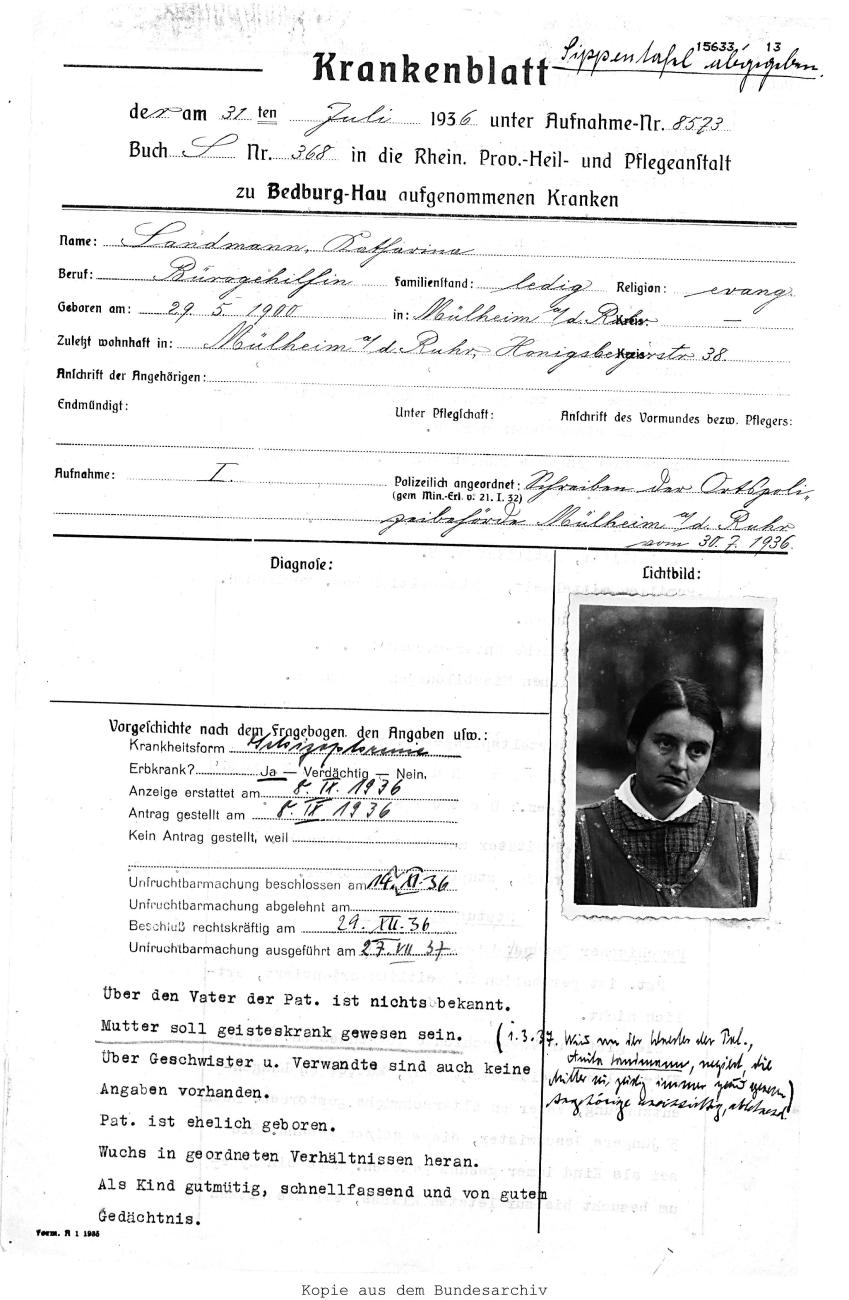 15633 13
Sippentafel abgegeben.
Krankenblatt
der am 31 ten Juli 1936 unter Aufnahme-Nr. 8573
Buch S Nr. 368 in die Rhein. Prov.-Heil- und Pflegeanstalt
zu Bedburg-Hau aufgenommenen Kranken
Name: Landmann, Katharina
Beruf: Bürogehilfin Familienstand: ledig Religion: evang.
Geboren am: 29. 5. 1900 in: Mülheim a/d. Ruhr Kreis: —
Zuletzt wohnhaft in: Mülheim a/d. Ruhr, Honigsbergerstr 38. Kreis
Anschrift der Angehörigen:
Endmündigt: Unter Pflegschaft: Anschrift des Vormundes bezw. Pflegers:
Aufnahme: I. Polizeilich angeordnet: Schreiben der Ortspoli-
(gem Min.-Erl. v. 21. I. 32)
zeibehörde Mülheim a/d. Ruhr
vom 30. 7. 1936.
Diagnose: Lichtbild:
Vorgeschichte nach dem Fragebogen, den Angaben usw.:
Krankheitsform Schizophrenie
Erbkrank? Ja — Verdächtig — Nein.
Anzeige erstattet am 8. IX. 1936
Antrag gestellt am 8. IX 1936
Kein Antrag gestellt, weil
Unfruchtbarmachung beschlossen am 14. XI. 36
Unfruchtbarmachung abgelehnt am
Beschluß rechtskräftig am 29. XII. 36
Unfruchtbarmachung ausgeführt am 27. VII 37
Über den Vater der Pat. ist nichts bekannt.
Mutter soll geisteskrank gewesen sein.
(1.3.37. Wird von der Schwester der Pat.,
Anita Landmann, negiert, die
Mutter sei geistig immer gesund gewesen)
Über Geschwister u. Verwandte sind auch keine
Angaben vorhanden.
Pat. ist ehelich geboren.
Wuchs in geordneten Verhältnissen heran.
Als Kind gutmütig, schnellfassend und von gutem
Gedächtnis.
Form. A 1 1935
Kopie aus dem Bundesarchiv